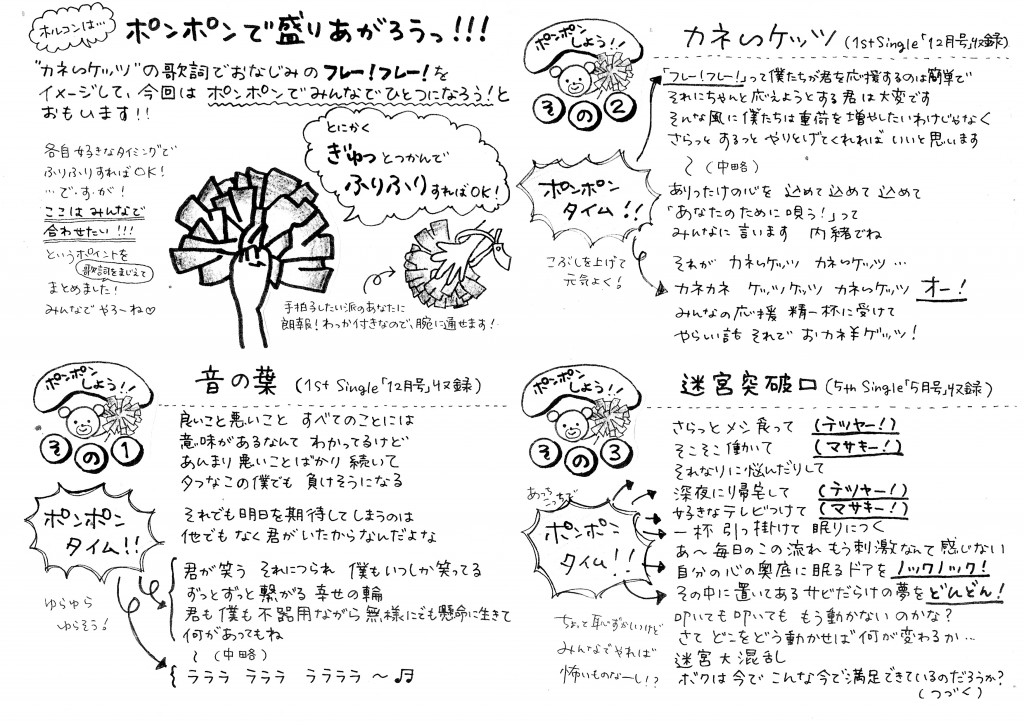 ホルコンは…
ポンポンで盛りあがろうっ!!!
"カネいケッツ"の歌詞でおなじみのフレー!フレー!を
イメージして、今回はポンポンでみんなでひとつになろう!と
おもいます!!
各自好きなタイミングで
ふりふりすればOK!
…で・す・が!
ここはみんなで
合わせたい!!!
というポイントを
歌詞をまじえて
まとめました!
みんなでやろ〜ね♡
とにかく
ぎゅっとつかんで
ふりふりすればOK!
手拍子したい派のあなたに
朗報!わっか付きなので、腕に通せます!
ポンポンしよう!!
その1
音の葉 (1st Single「12月号」収録)
良いこと悪いこと すべてのことには
意味があるなんて わかってるけど
あんまり悪いことばかり 続いて
タフなこの僕でも 負けそうになる
それでも明日を期待してしまうのは
他でもなく君がいたからなんだよな
ポンポン
タイム!!
ゆらゆら
ゆらそう!
君が笑う それにつられ 僕もいつしか笑ってる
ずっとずっと繋がる 幸せの輪
君も僕も不器用ながら無様にでも懸命に生きて
何があってもね
〜(中略)
ラララ ラララ ララララ 〜♬
ポンポンしよう!!
その2
カネいケッツ (1st Single「12月号」収録)
「フレー!フレー!」って僕たちが君を応援するのは簡単で
それにちゃんと応えようとする君は大変です
そんな風に僕たちは重荷を増やしたいわけじゃなく
さらっと するっと やりとげてくれれば いいと思います
〜(中略)
ポンポン
タイム!!
ありったけの心を 込めて込めて込めて
「あなたのために唄う!」って
みんなに言います 内緒でね
こぶしを上げて
元気よく!
それが カネいケッツ カネいケッツ…
カネカネ ケッツケッツ カネいケッツ オー!
みんなの応援 精一杯に受けて
やらしい話 それで おカネギゲッツ!
ポンポンしよう!!
その3
迷宮突破口 (5th Single「5月号」収録)
さらっとメシ食って (テツヤー!)
そこそこ働いて (マサキー!)
それなりに悩んだりして
深夜にり帰宅して (テツヤー!)
好きなテレビつけて (マサキー!)
一杯 引っ掛けて 眠りにつく
あ〜毎日のこの流れ もう刺激なんて感じない
自分の心の奥底に眠るドアを ノックノック!
その中に置いてあるサビだらけの夢を どんどん!
叩いても叩いても もう動かないのかな?
さて どこをどう動かせば何が変わるか…
迷宮大混乱
ボクは今で こんな今で満足できているのだろうか?
(つづく)
あっちこっち
ポンポン
タイム!!
ちょっと恥ずかしいけど
みんなでやれば
怖いものなーし!?